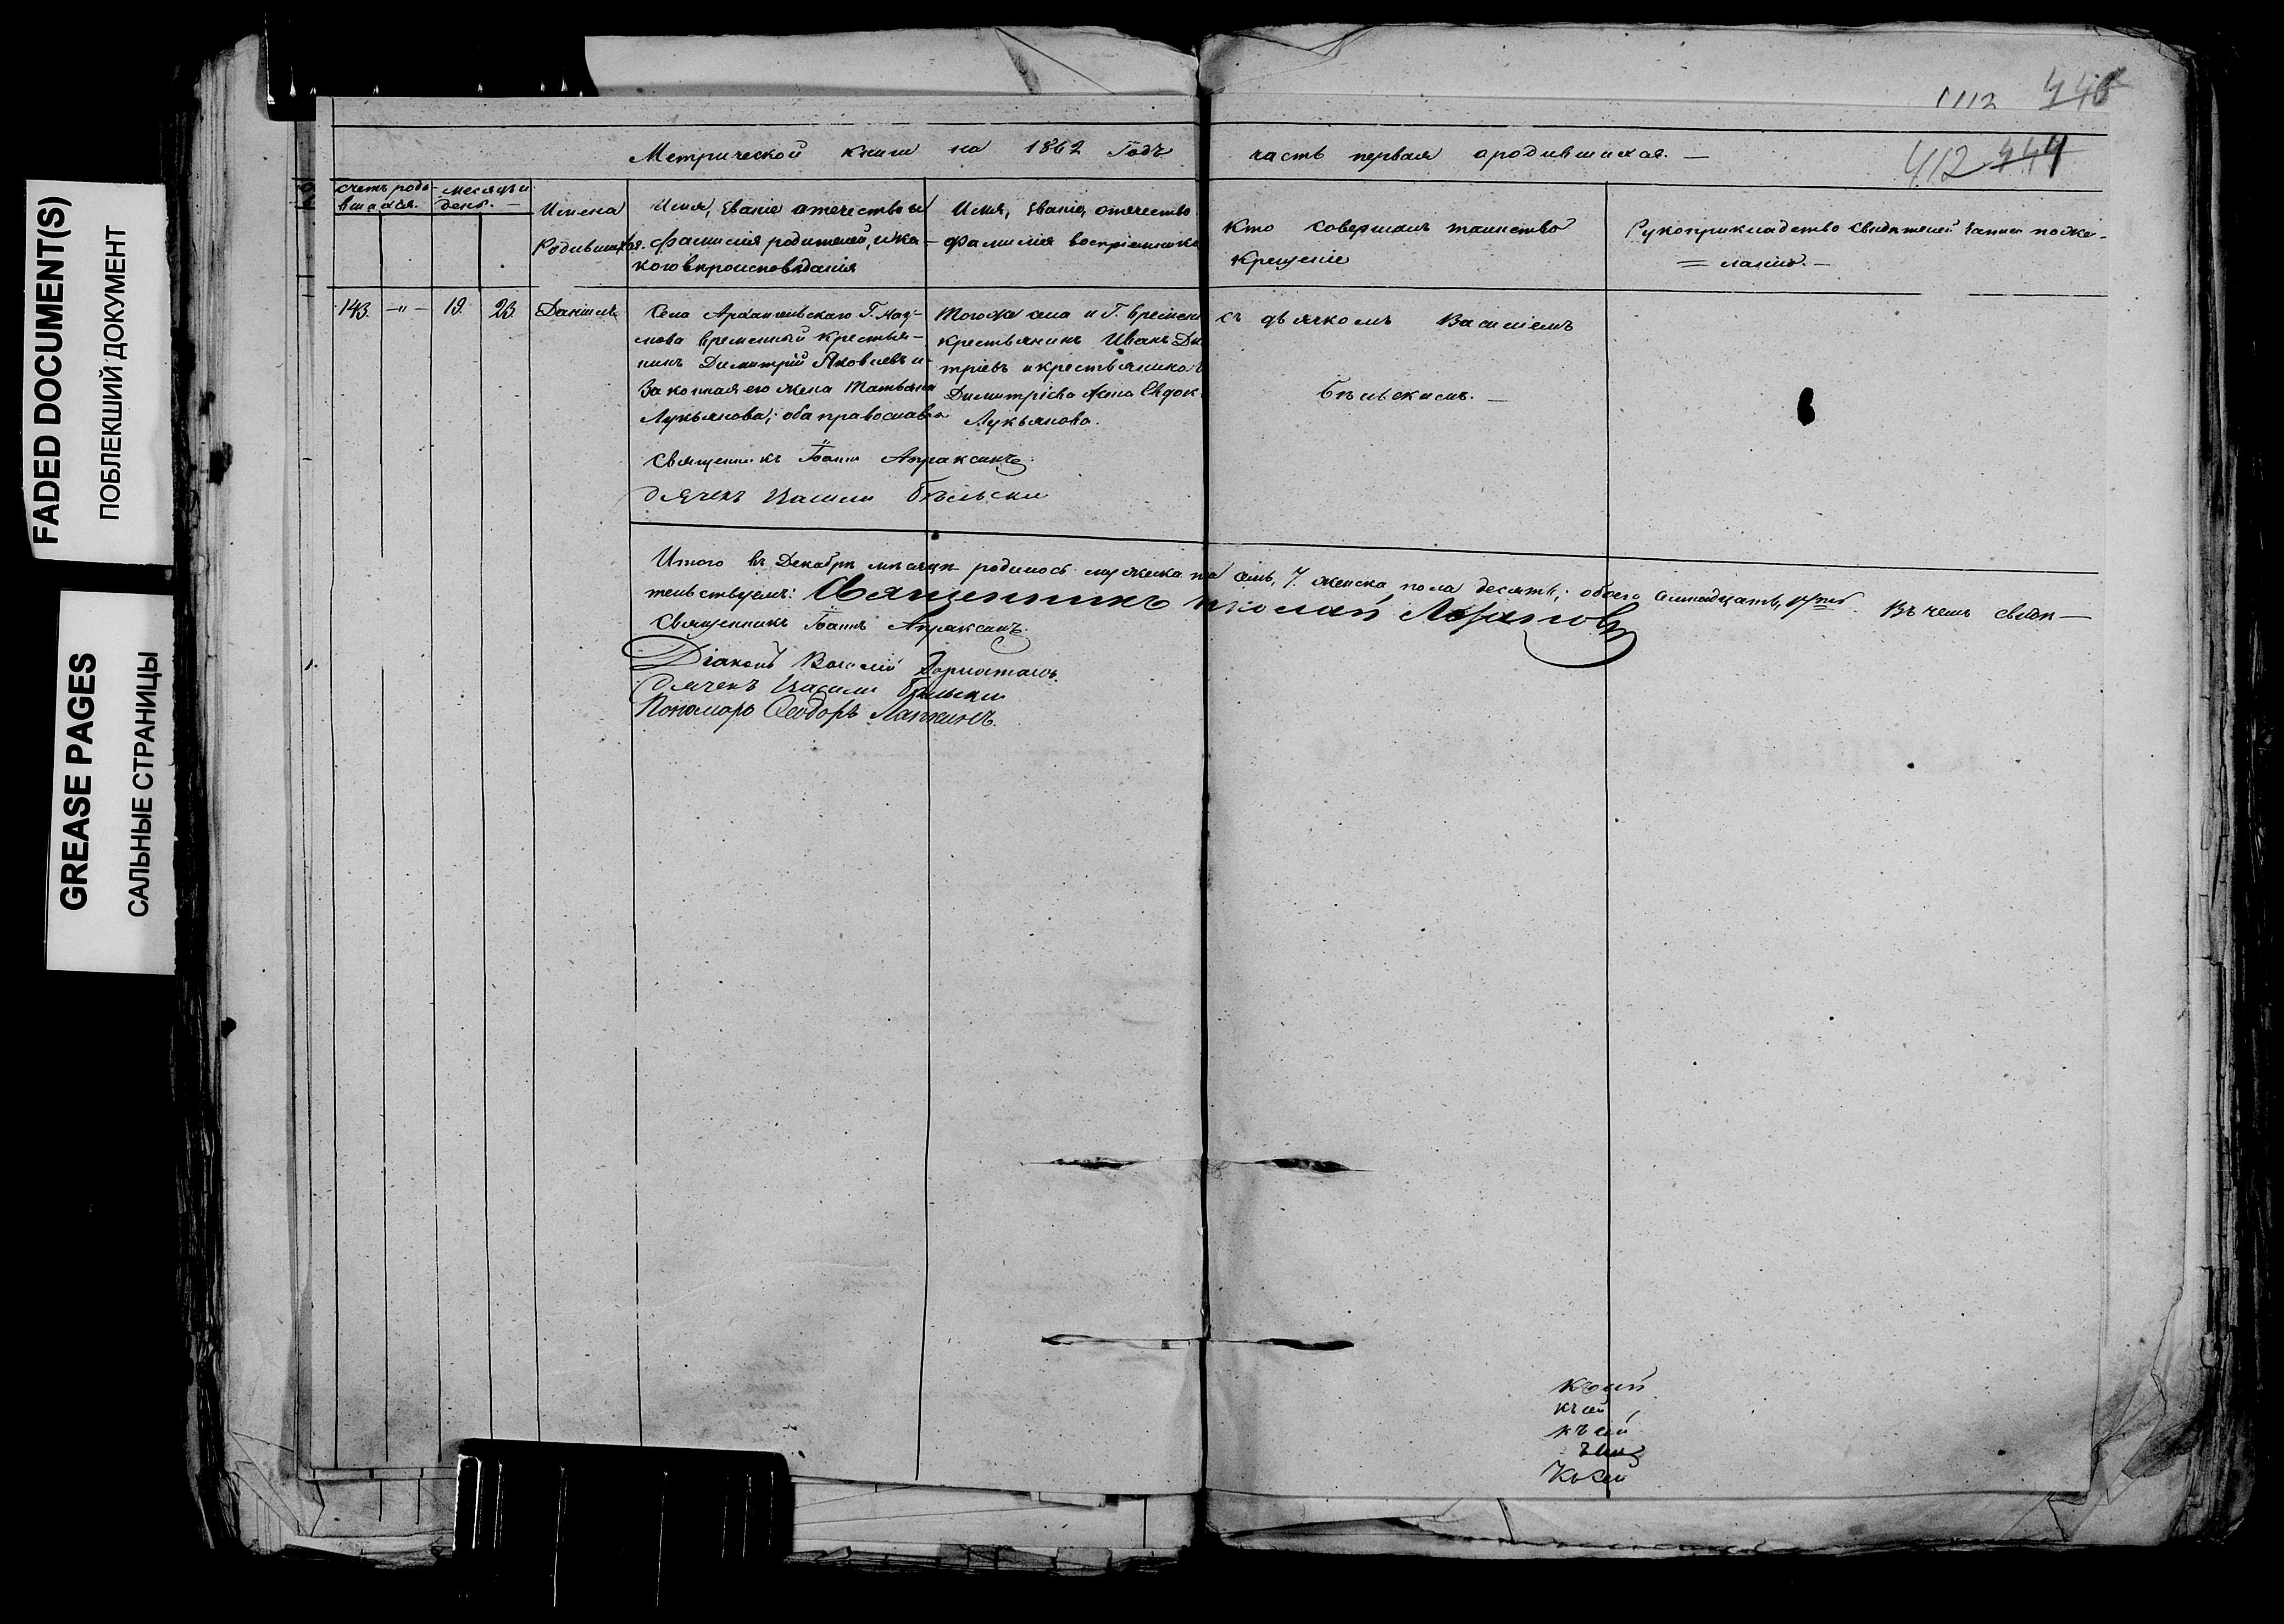 FADED DOCUMENT(S)
ПОБЛЕКШИЙ ДОКУМЕНТ
GREASE PAGES
САЛЬНЫЕ СТРАНИЦЫ
412
Метрической книги на 1862 Годъ
часть первая ородившихся. —
счетъ роди-
вшихся.
месяцъ и
день. —
Имена
Родившихся.
Имя, званіе отечество и
фамилія родителей, и ка-
кого вѣроисповѣданія
Имя, званіе, отечество
фамилія воспріемнико
Кто совершалъ таинство
крещеніе
Рукоприкладство свидѣтелей записи по же-
= ланію. —
143. —"— 19. 23. Даніилъ
Села Архангельскаго Г. Нау-
мова временный крестья-
нинъ Димитрій Яковлевъ и
Законная его жена Татьяна
Лукьянова; оба православн
Тогоже села и Г. времен
крестьянинъ Иванъ Ди
тріевъ и крестьянина
Димитріева жена Евдок
Лукьянова.
съ дьячкомъ Василіемъ
Бѣльскимъ. —
Священникъ Іоаннъ Апраксинъ
Дячекъ Васили Бѣльски
Итого въ Декабрѣ мѣсяцѣ родилось мужеска по семь, 7. женска пола десять; обоего семнадцать, 17. Въ чемъ свидѣ-
тельствуемъ: Священникъ Николай
Священникъ Іоаннъ Апраксинъ.
Діаконъ Василій
Дячекъ Васили Бѣльски
Пономарь Ѳеодоръ Лапкинъ.